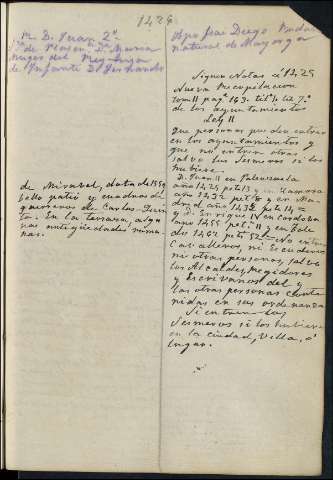 1426
M. D. Juan 2º
de D. Maria
muger del Rey hija
del Infante D. Fernando
de Mirabel, data de 1559
bello patio y cuadros de
guerreros de Carlos Quin-
to. En la terraza, algu-
nas antigüedades roma-
nas.
Diego
natural de Mayorga
Siguen Notas a 1425
Nueva Recopilacion
tom II pag. 163. titº lib. 7.º
de los ayuntamientos
Ley II
Que personas pueden entrar
en los ayuntamientos y
que no entren otras
salvo los sesmeros si los
hubiere.
D. Juan II en Palenzuela
año 1425 pet 13 y en Zamora
año 1432 pet 8 y en Ma-
drid año 1438 pet 14 =
y D. Enrique IV en Cordoba
año 1455 pet. 11 y en Tole-
do 1462 pet. 52 = No entren
Caballeros, ni Escuderos
ni otras personas, salvo
los Alcaldes, Regidores
y Escrivanos del y
las otras personas conte-
nidas en sus ordenanzas
Si entren los
Sesmeros si los hubiere
en la ciudad, Villa, o
lugar.